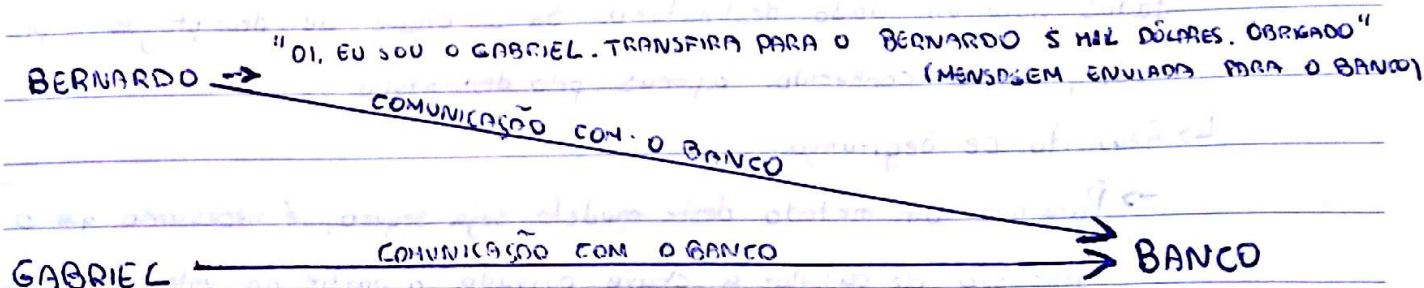 "OI, EU SOU O GABRIEL. TRANSFIRA PARA O BERNARDO 5 MIL DÓLARES. OBRIGADO"
BERNARDO → (MENSAGEM ENVIADA PARA O BANCO)
COMUNICAÇÃO COM O BANCO
GABRIEL COMUNICAÇÃO COM O BANCO BANCO